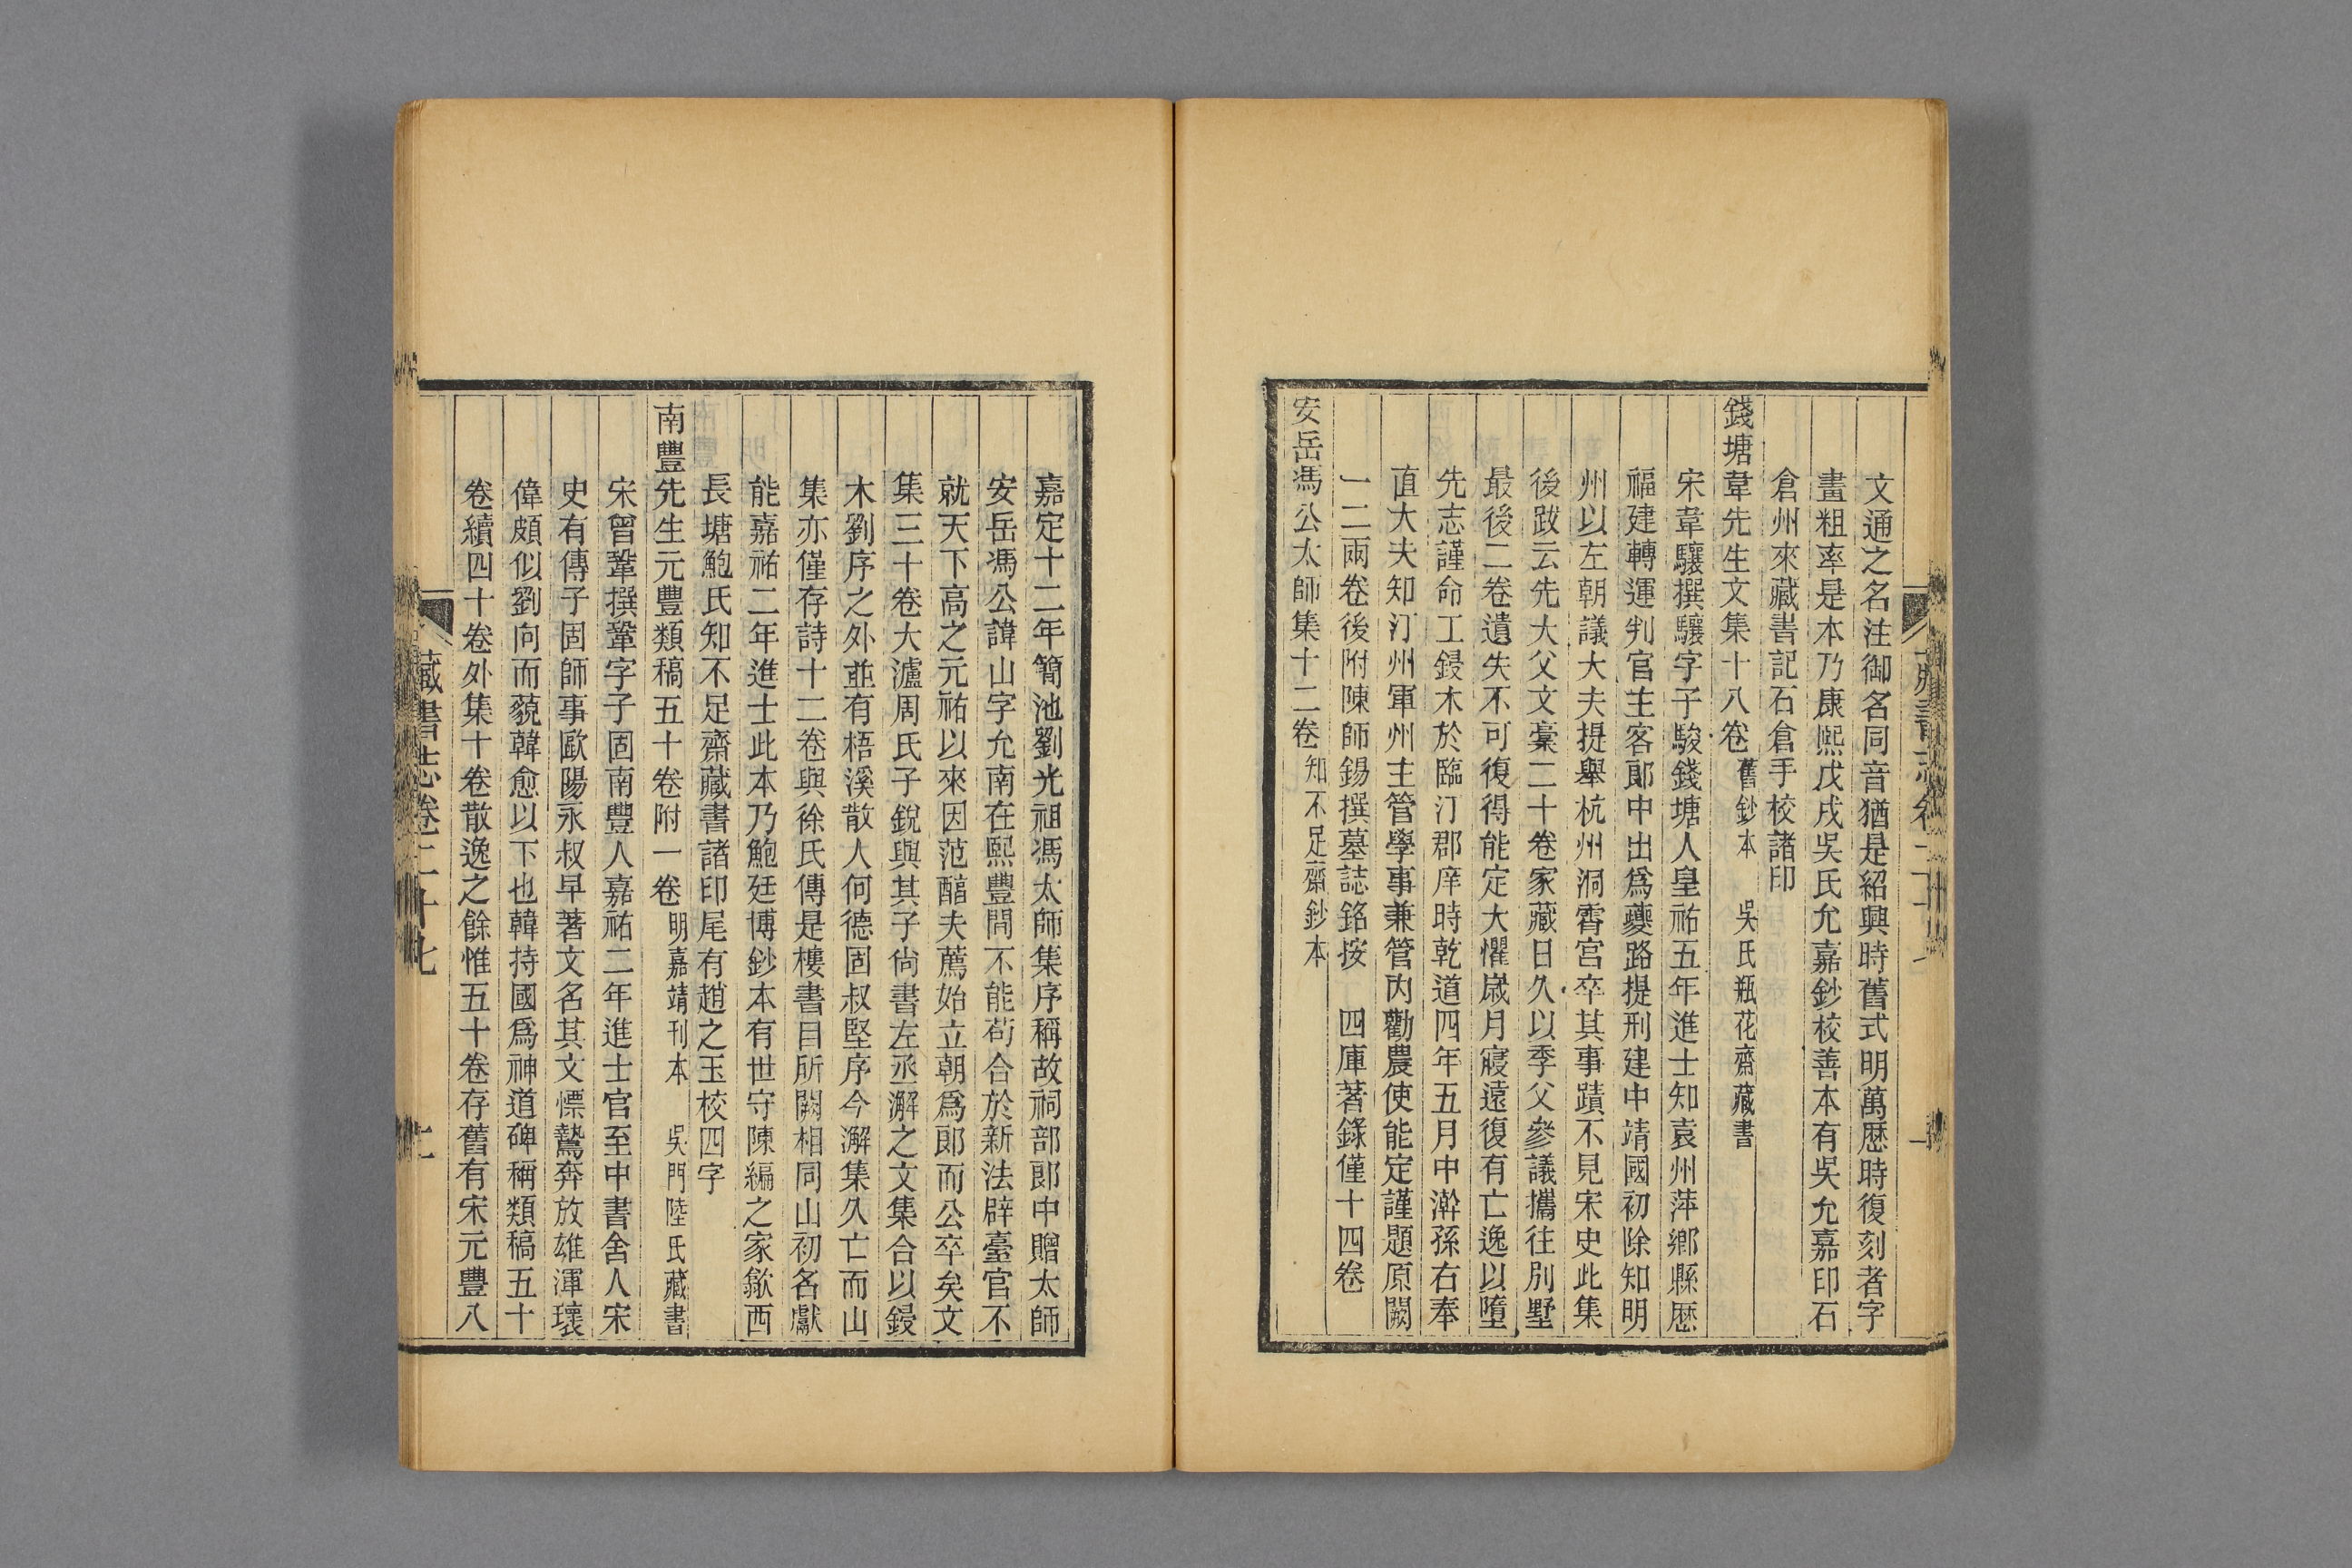 文通之名注御名同音猶是紹興時舊式明萬歷時復刻者字
畫粗率是本乃康熙戊戌吳氏允嘉鈔校善本有吳允嘉印石
倉州來藏書記石倉手校諸印
錢塘韋先生文集十八卷 舊鈔本 吳氏瓶花齋藏書
宋韋驤撰驤字子駿錢塘人皇祐五年進士知袁州萍鄉縣歷
福建轉運判官主客郎中出爲夔路提刑建中靖國初除知明
州以左朝議大夫提舉杭州洞霄宮卒其事蹟不見宋史此集
後跋云先大父文稾二十卷家藏日久以季父參議攜往別墅
最後二卷遺失不可復得能定大懼歲月寖遠復有亡逸以墮
先志謹命工鋟木於臨汀郡庠時乾道四年五月中澣孫右奉
直大夫知汀州軍州主管學事兼管內勸農使能定謹題原闕
一二兩卷後附陳師錫撰墓誌銘按 四庫著錄僅十四卷
安岳馮公太師集十二卷 知不足齋鈔本
嘉定十二年簡池劉光祖馮太師集序稱故祠部郎中贈太師
安岳馮公諱山字允南在熙豐間不能苟合於新法辟臺官不
就天下高之元祐以來因范醕夫薦始立朝爲郎而公卒矣文
集三十卷大瀘周氏子銳與其子尙書左丞澥之文集合以鋟
木劉序之外並有梧溪散人何德固叔堅序今澥集久亡而山
集亦僅存詩十二卷與徐氏傳是樓書目所闕相同山初名獻
能嘉祐二年進士此本乃鮑廷博鈔本有世守陳編之家歙西
長塘鮑氏知不足齋藏書諸印尾有趙之玉校四字
南豐先生元豐類稿五十卷附一卷 明嘉靖刊本 吳門陸氏藏書
宋曾鞏撰鞏字子固南豐人嘉祐二年進士官至中書舍人宋
史有傳子固師事歐陽永叔早著文名其文慓鷙奔放雄渾瓌
偉頗似劉向而藐韓愈以下也韓持國爲神道碑稱類稿五十
卷續四十卷外集十卷散逸之餘惟五十卷存舊有宋元豐八
藏書志卷二十七